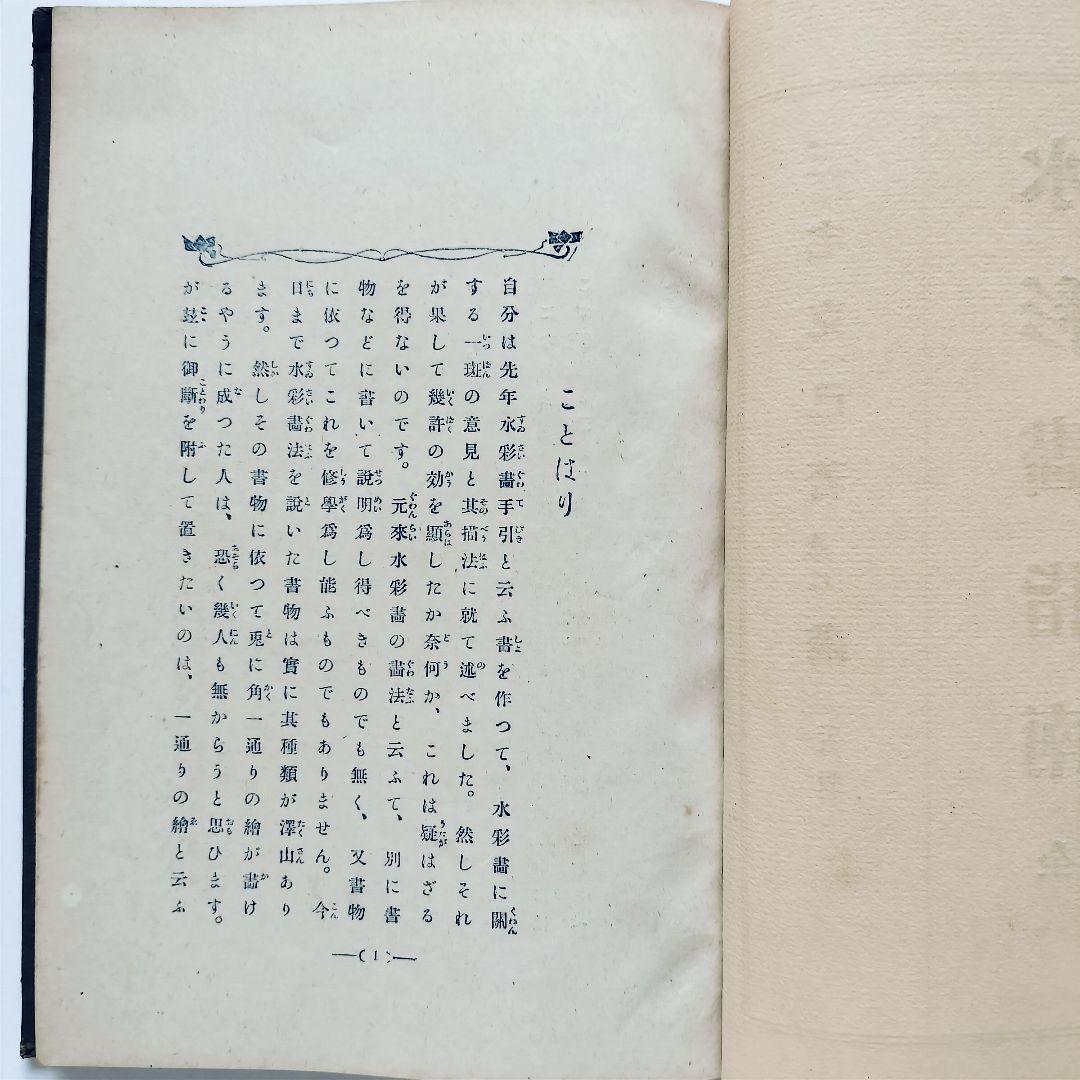 ことはり
自分は先年水彩畵手引と云ふ書を作つて、水彩畵に關
する一斑の意見と其描法に就て述べました。然しそれ
が果して幾許の効を顯したか奈何か、これは疑はざる
を得ないのです。元來水彩畵の畵法と云ふて、別に書
物などに書いて說明爲し得べきものでも無く、又書物
に依つてこれを修學爲し能ふものでもありません。今
日まで水彩畵法を說いた書物は實に其種類が澤山あり
ます。然しその書物に依つて兎に角一通りの繪が畵け
るやうに成つた人は、恐く幾人も無からうと思ひます。
が玆に御斷を附して置きたいのは、一通りの繪と云ふ
―(1)―